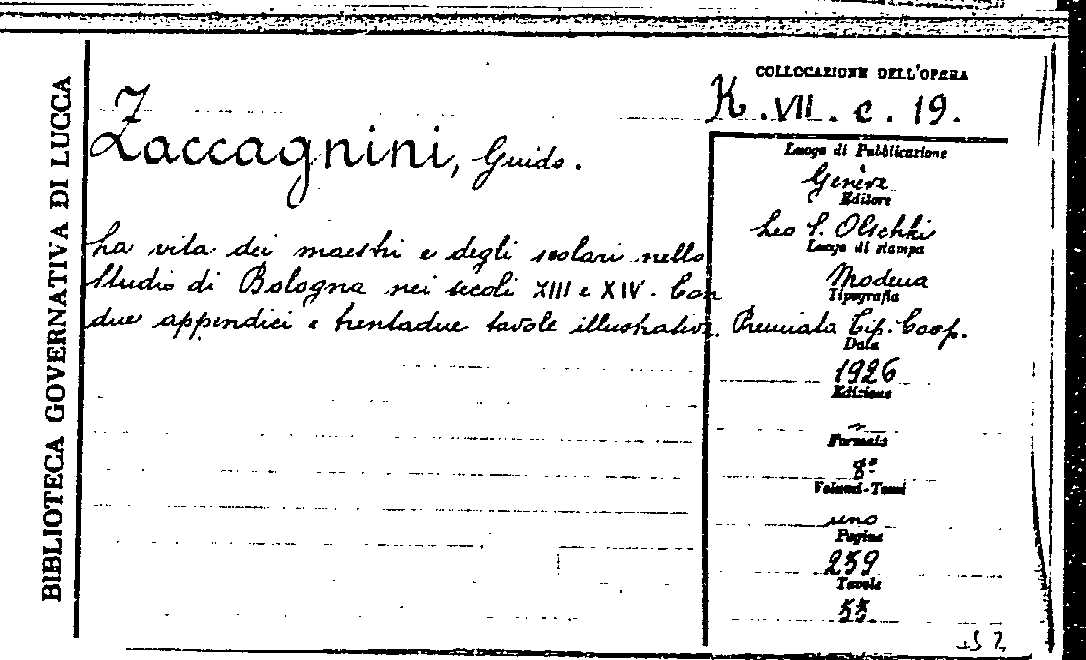 BIBLIOTECA GOVERNATIVA DI LUCCA
COLLOCAZIONE DELL'OPERA
K. VII. c. 19.
Z
Zaccagnini, Guido.
La vita dei maestri e degli scolari nello
Studio di Bologna nei secoli XIII e XIV. Con
due appendici e trentadue tavole illustrative.
Luogo di Pubblicazione
Genève
Editore
Leo S. Olschki
Luogo di stampa
Modena
Tipografia
Premiata Tip. Coop.
Data
1926
Edizione
Formato
8º
Volumi-Tomi
uno
Pagine
239
Tavole